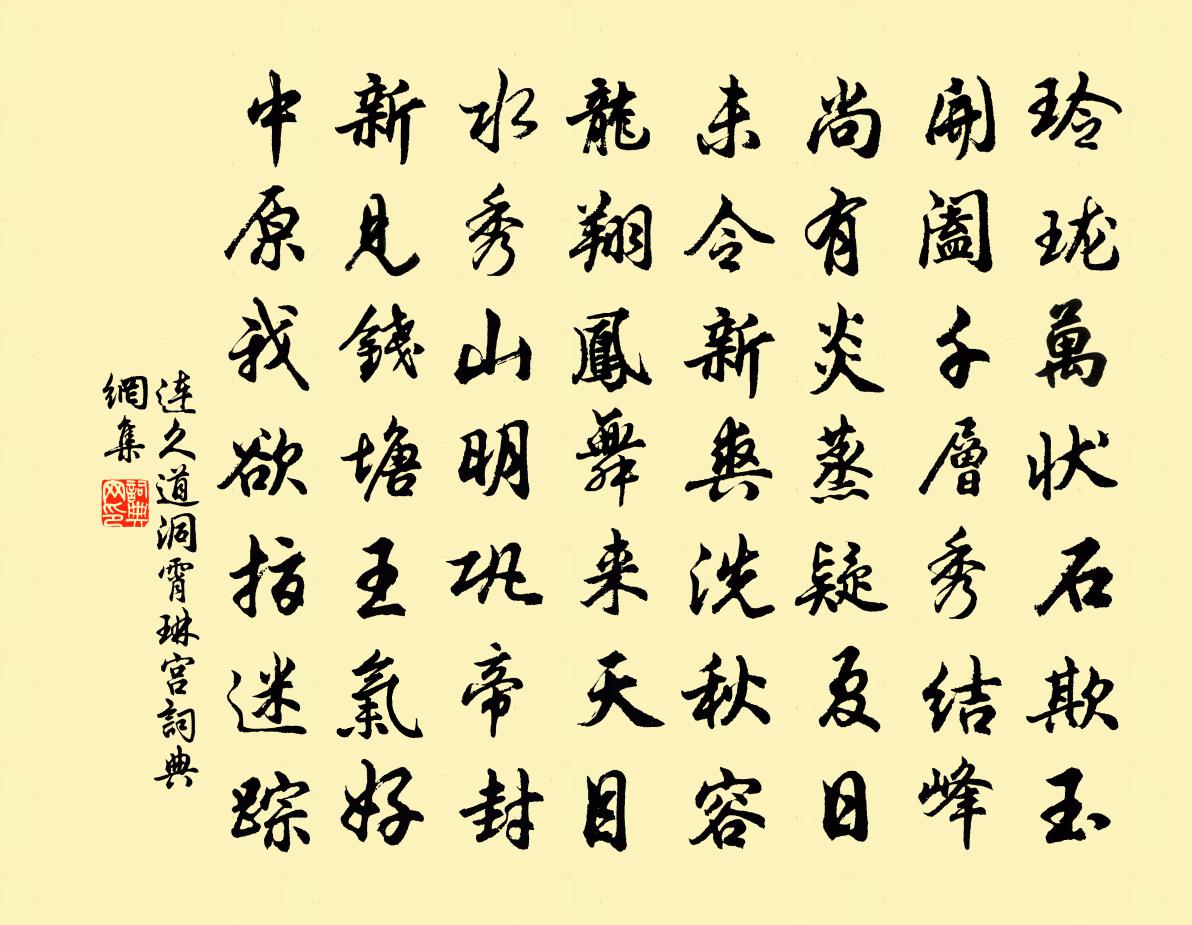 玲珑萬状石欺玉
開闔千層秀结峰
尚有炎蒸疑夏日
未令新爽洗秋容
龍翔鳳舞来天目
水秀山明巩帝封
新見錢塘王氣好
中原我欲指迷踪
连久道洞霄琳宫詞典
網集
詞典
网印